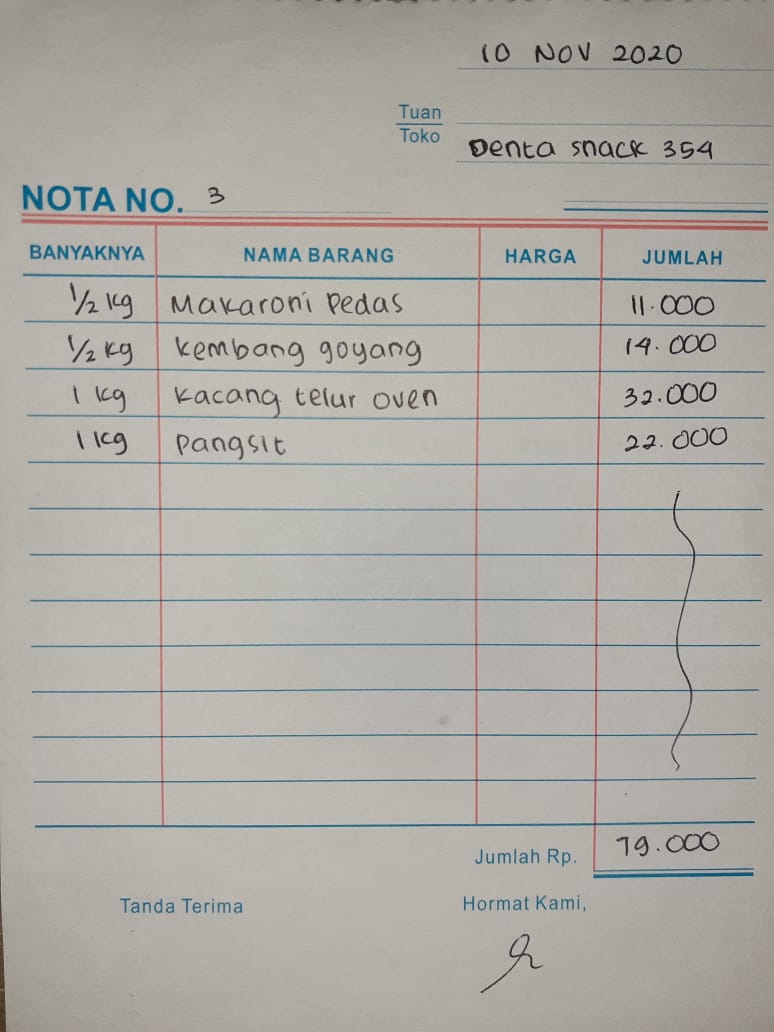 10 NOV 2020
Tuan
Toko
Denta snack 354
NOTA NO. 3
BANYAKNYA NAMA BARANG HARGA JUMLAH
1/2 kg Makaroni Pedas 11.000
1/2 kg kembang goyang 14.000
1 kg kacang telur oven 32.000
1 kg Pangsit 22.000
Jumlah Rp. 79.000
Tanda Terima Hormat Kami,